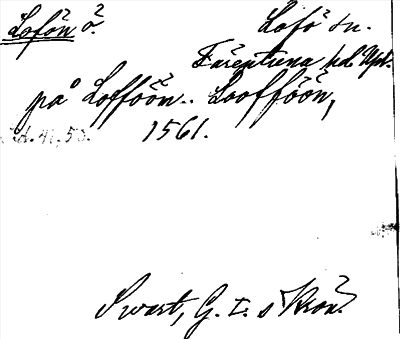 Lofön ö. Lofö sn.
Färentuna hd. Upl.
på Lofföön.. Loofföön,
1561.
Swart, G. I. s Krön.